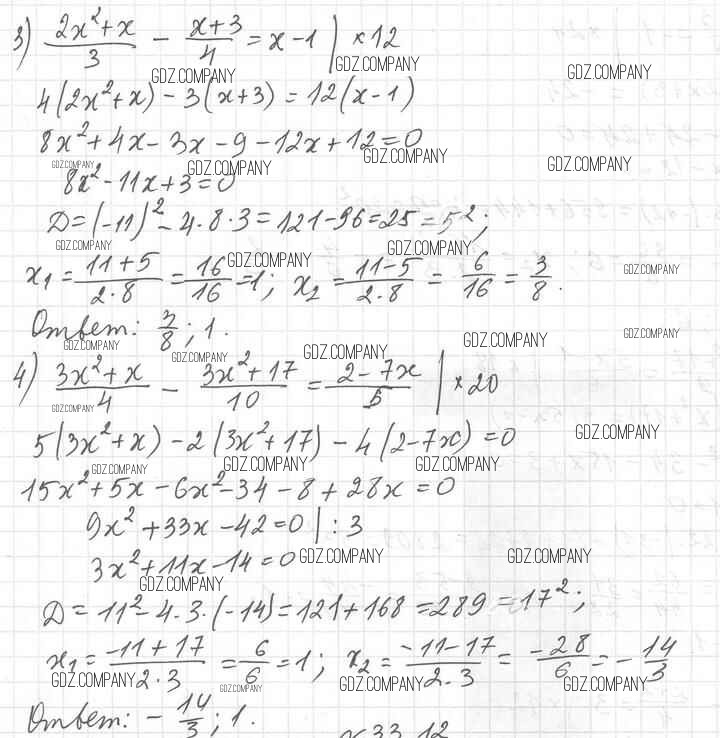 3) (2x²+x)/3 − (x+3)/4 = x−1 | ×12
GDZ.COMPANY GDZ.COMPANY GDZ.COMPANY
4(2x²+x) − 3(x+3) = 12(x−1)
8x²+4x−3x−9−12x+12=0
GDZ.COMPANY GDZ.COMPANY GDZ.COMPANY GDZ.COMPANY
8x²−11x+3=0
D=(−11)²−4·8·3=121−96=25=5²;
GDZ.COMPANY GDZ.COMPANY GDZ.COMPANY
x₁ = (11+5)/(2·8) = 16/16 = 1; x₂ = (11−5)/(2·8) = 6/16 = 3/8.
GDZ.COMPANY
Ответ: 3/8; 1.
GDZ.COMPANY GDZ.COMPANY GDZ.COMPANY GDZ.COMPANY GDZ.COMPANY
4) (3x²+x)/4 − (3x²+17)/10 = (2−7x)/5 | ×20
GDZ.COMPANY
5(3x²+x) − 2(3x²+17) − 4(2−7x) = 0
GDZ.COMPANY
GDZ.COMPANY GDZ.COMPANY GDZ.COMPANY
15x²+5x−6x²−34−8+28x=0
9x²+33x−42=0 | :3
3x²+11x−14=0
GDZ.COMPANY GDZ.COMPANY
GDZ.COMPANY
D=11²−4·3·(−14)=121+168=289=17²;
x₁ = (−11+17)/(2·3) = 6/6 = 1; x₂ = (−11−17)/(2·3) = −28/6 = −14/3
GDZ.COMPANY GDZ.COMPANY GDZ.COMPANY GDZ.COMPANY
Ответ: −14/3; 1.